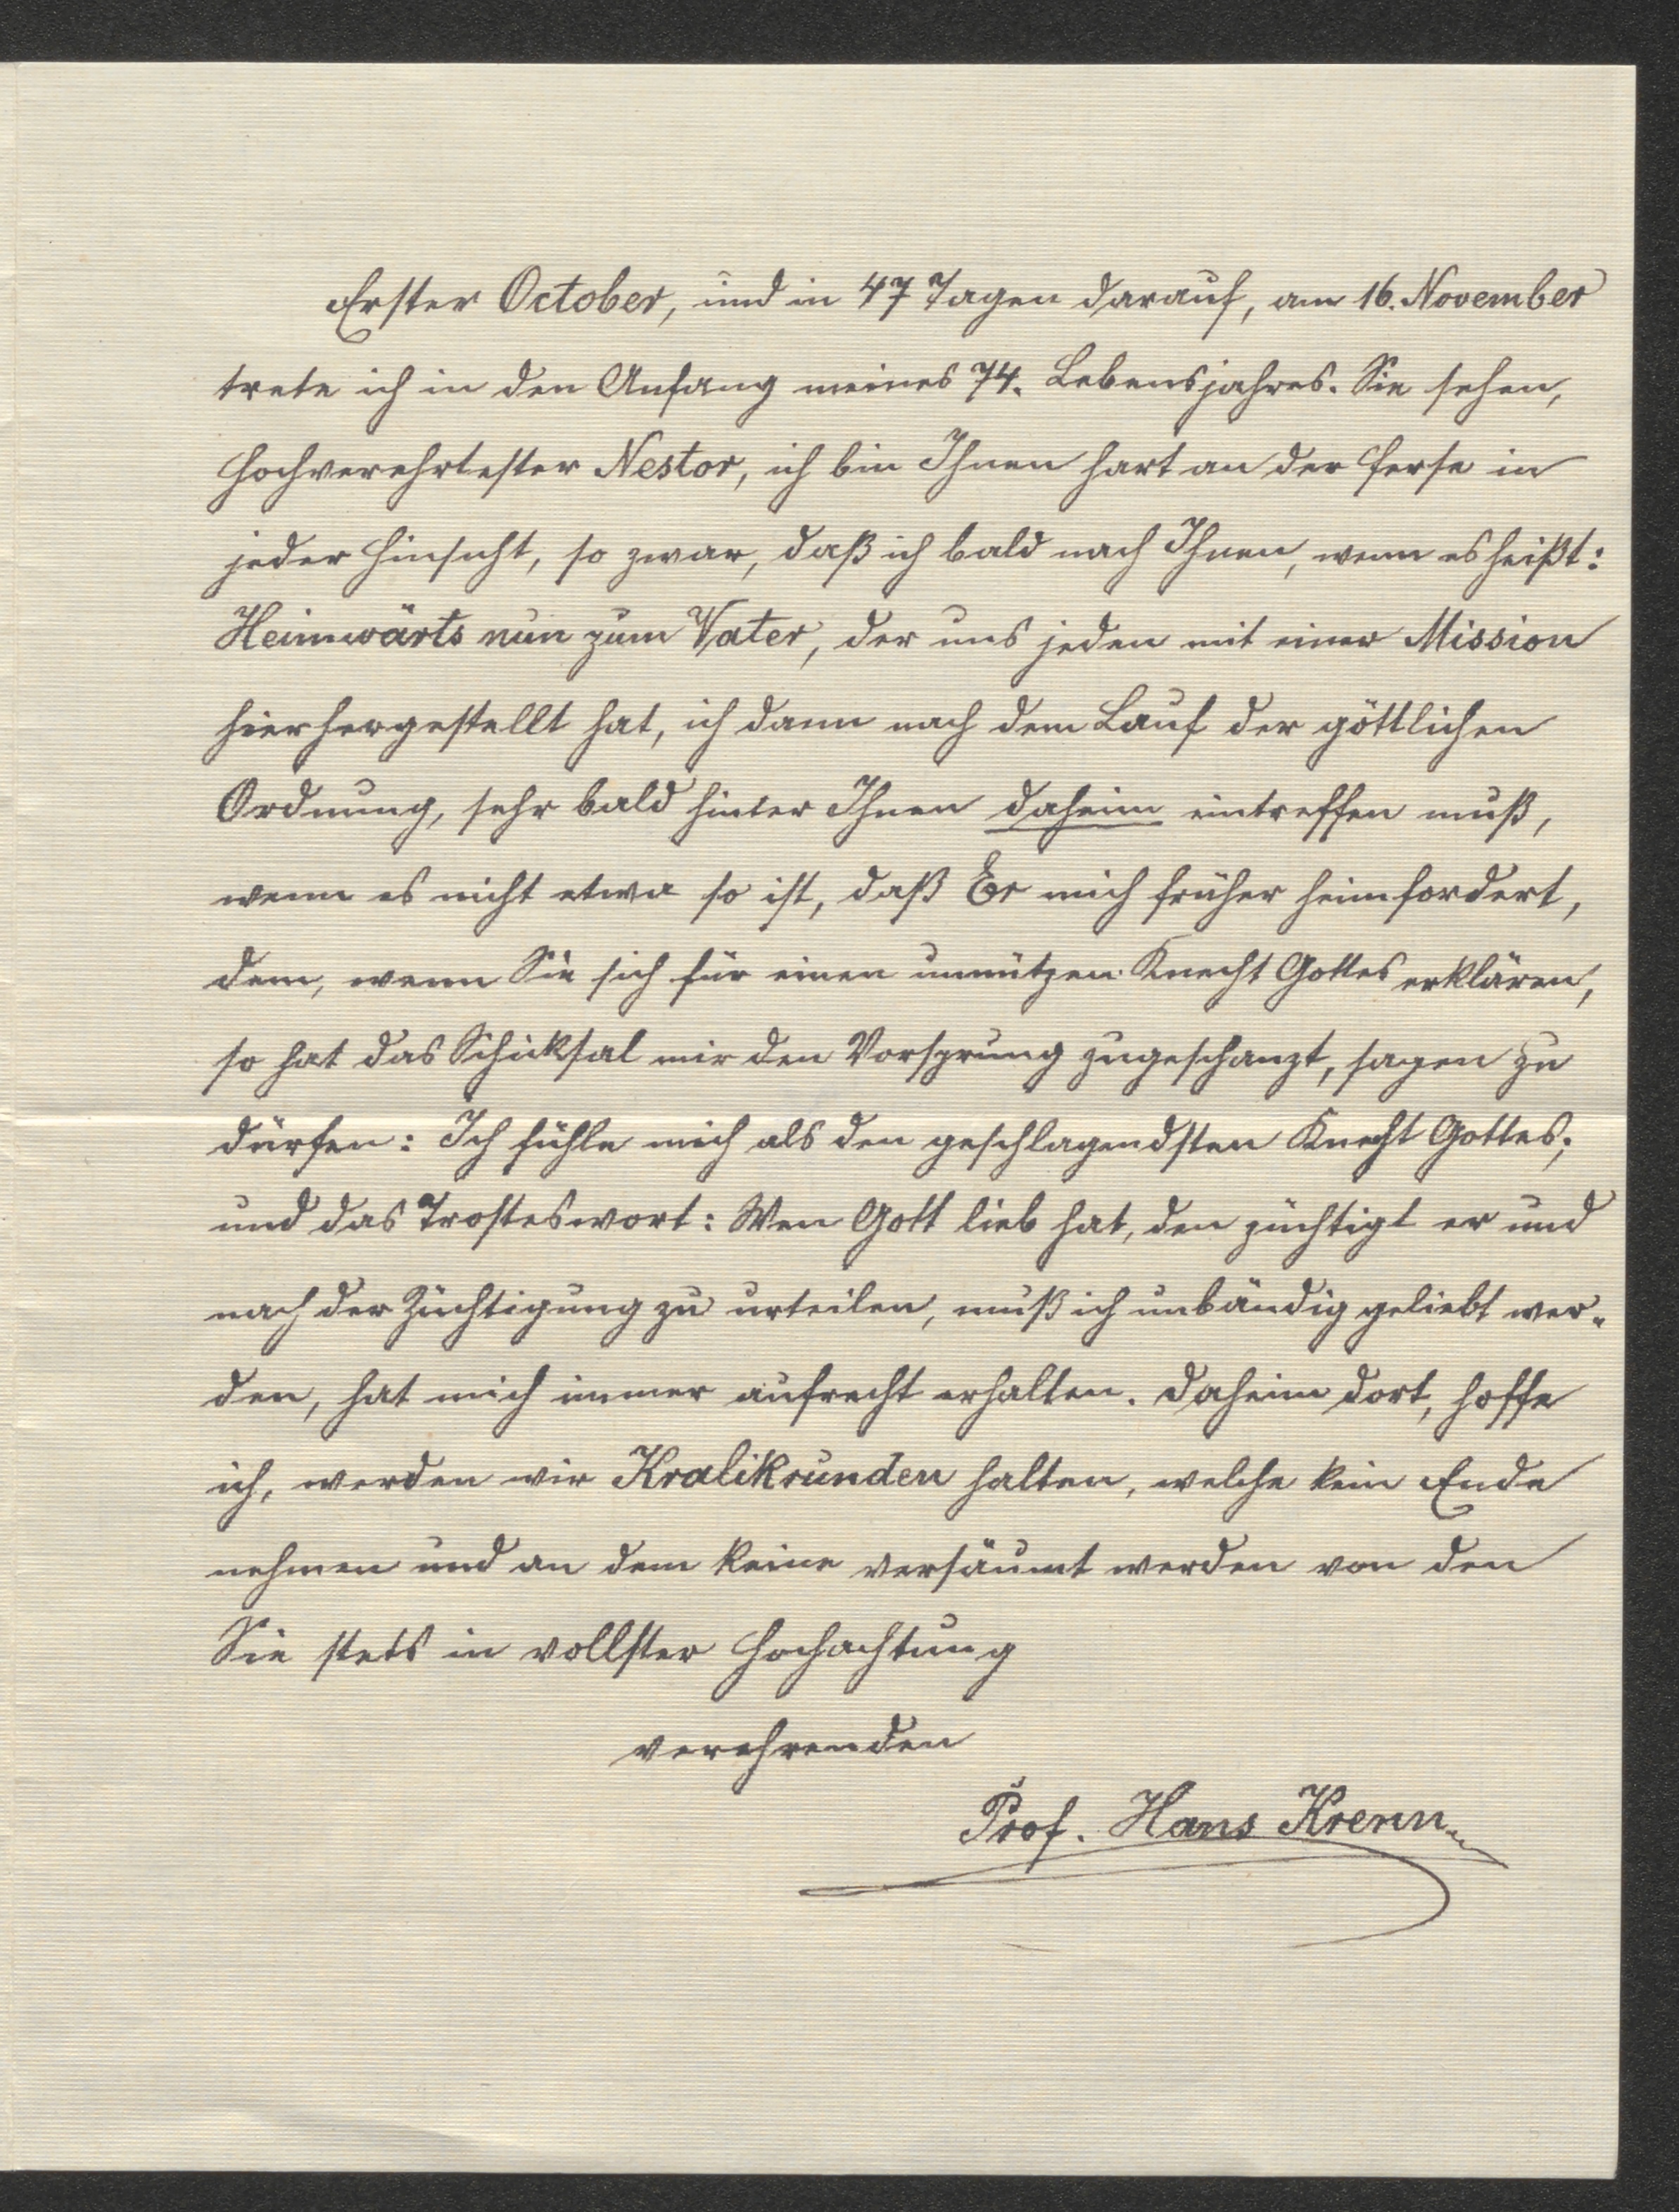 Erster October, und in 47 Tagen darauf, am 16. November
trete ich in den Anfang meines 74. Lebensjahres. Sie sehen,
hochverehrtester Nestor, ich bin Ihnen hart an der Ferse in
jeder Hinsicht, so zwar, daß ich bald nach Ihnen, wenn es heißt:
Heimwärts nun zum Vater, der uns jeden mit einer Mission
hierhergestellt hat, ich dann nach dem Lauf der göttlichen
Ordnung, sehr bald hinter Ihnen daheim eintreffen muß,
wenn es nicht etwa so ist, daß Er mich früher heimfordert,
denn, wenn Sie sich für einen unnützen Knecht Gottes erklären,
so hat das Schicksal mir den Vorsprung zugeschanzt, sagen zu
dürfen: Ich fühle mich als den geschlagendsten Knecht Gottes;
und das Trosteswort: Wen Gott lieb hat, den züchtigt er und
nach der Züchtigung zu urteilen, muß ich unbändig geliebt wer-
den, hat mich immer aufrecht erhalten. Daheim dort, hoffe
ich, werden wir Kralikrunden halten, welche kein Ende
nehmen und an dem keine versäumt werden von den
Sie stets in vollster Hochachtung
verehrenden
Prof. Hans Krenn